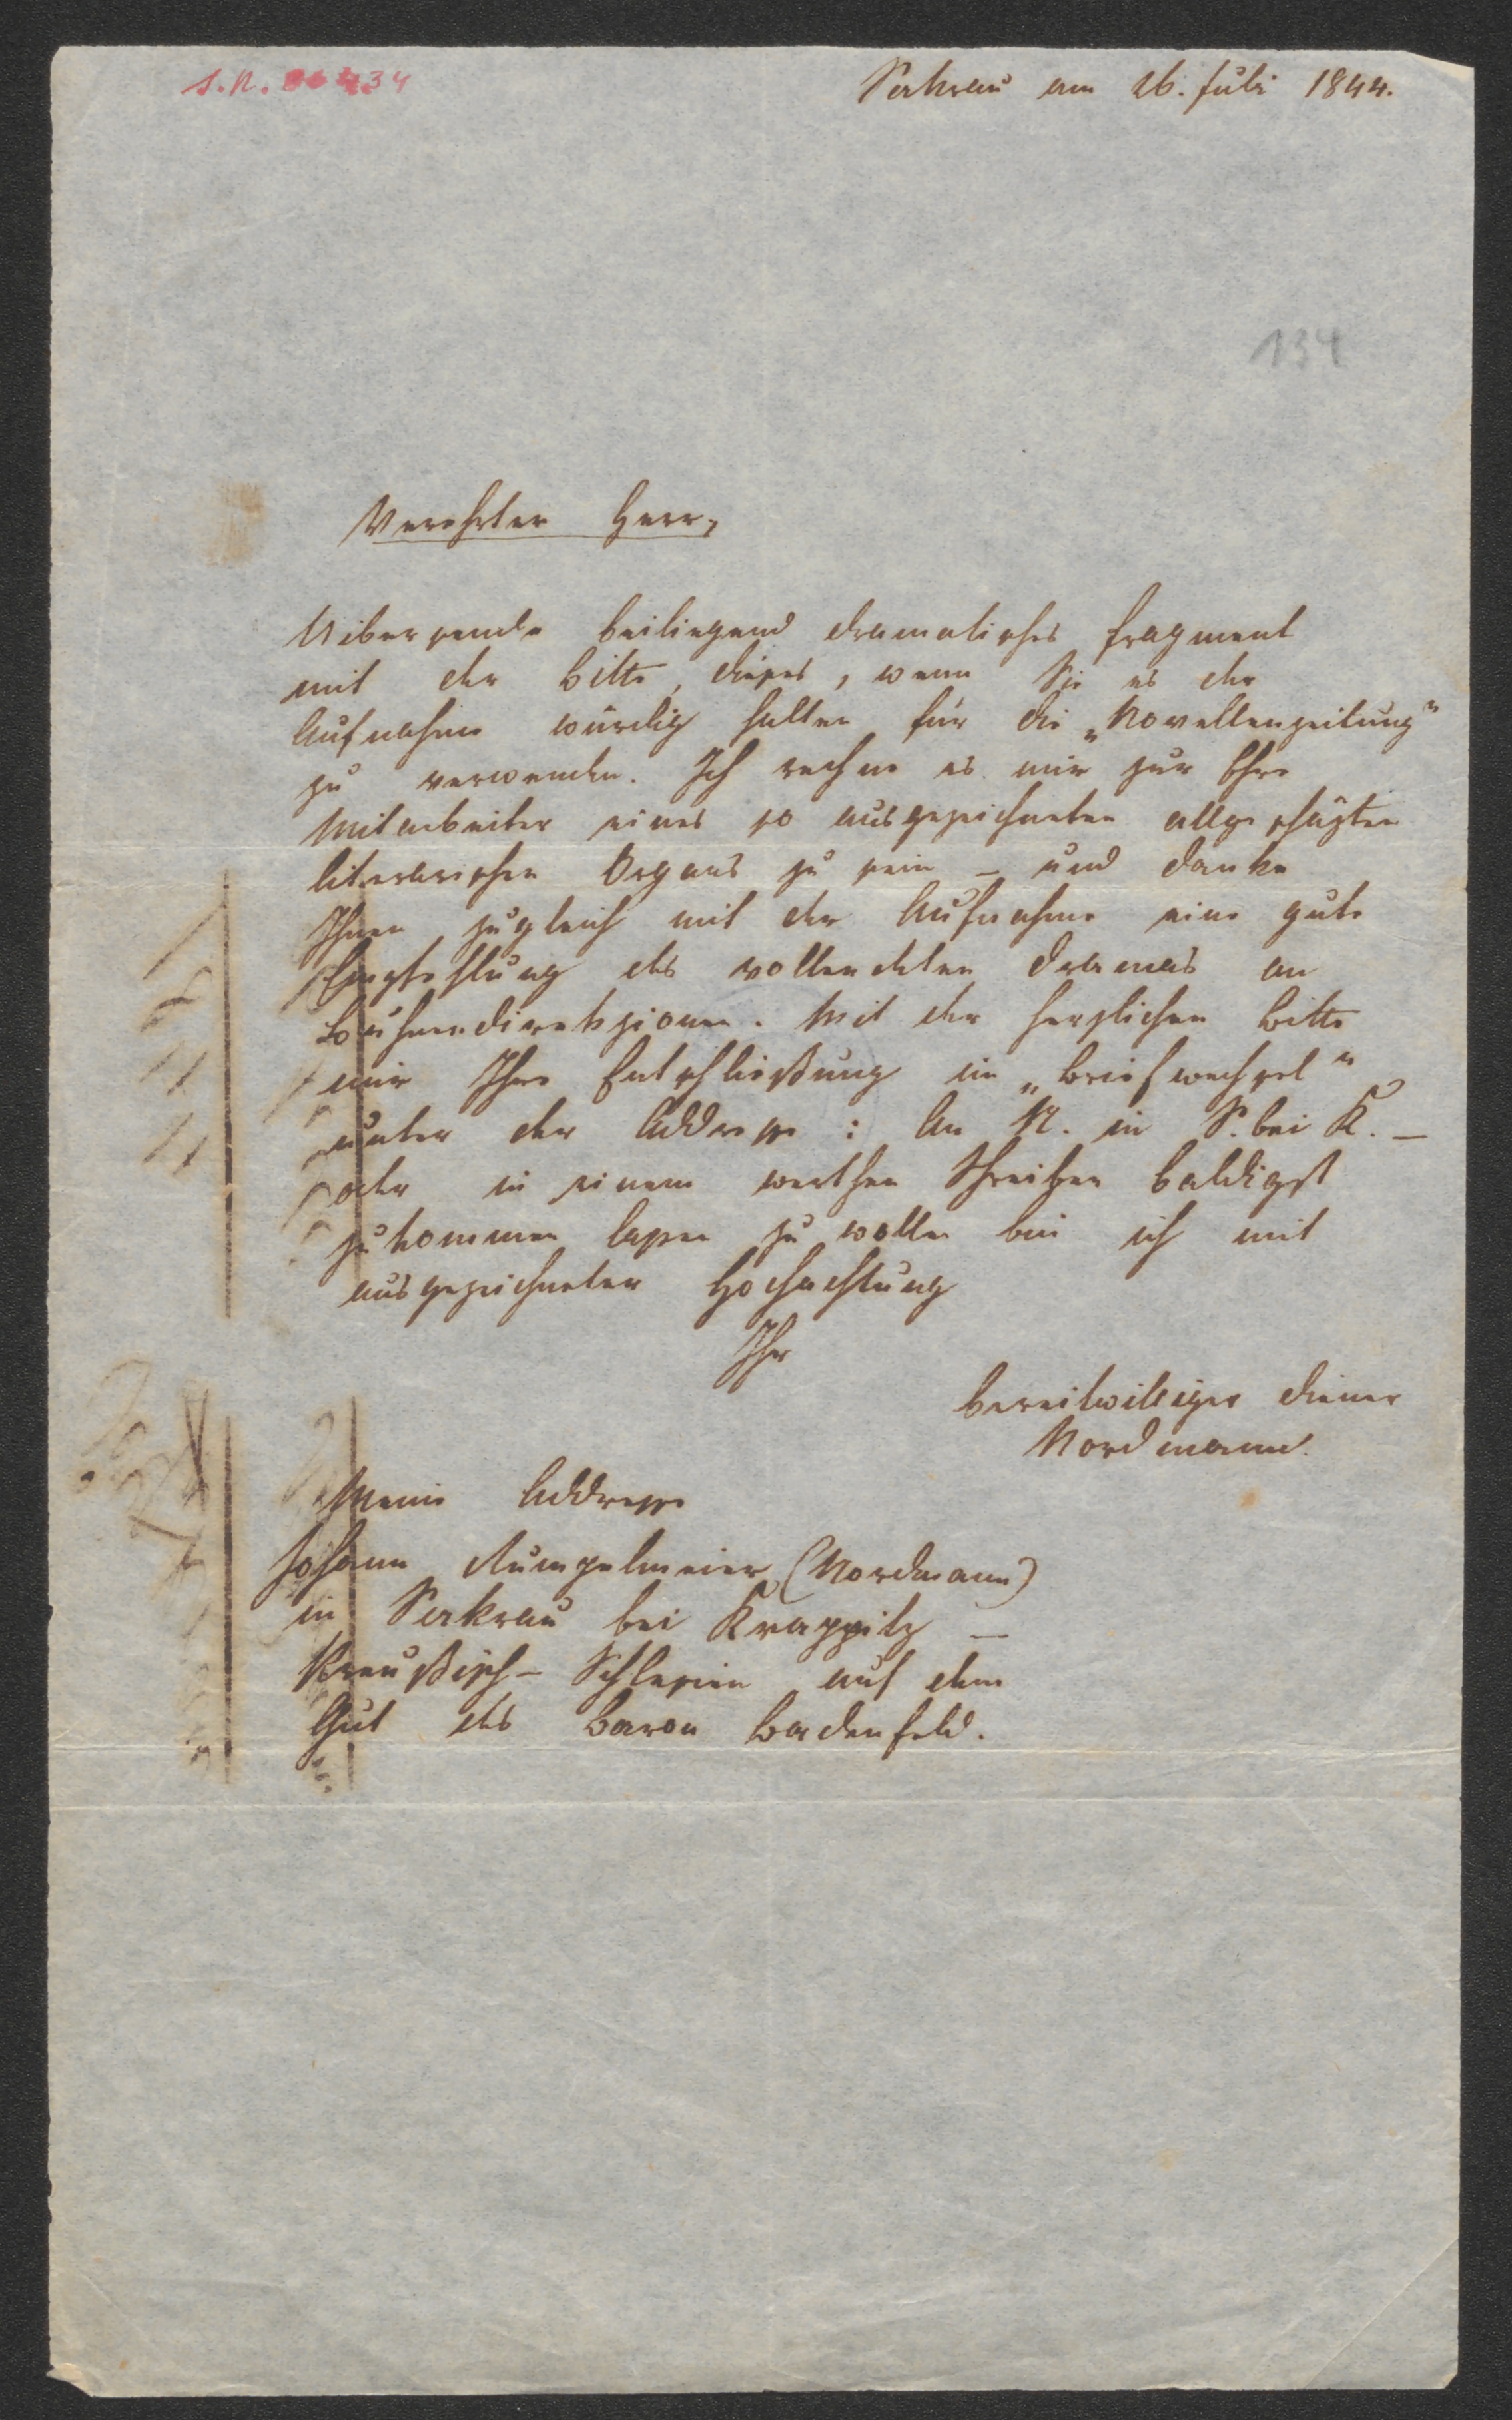 Sakrau am 26. Juli 1844.
134
Verehrter Herr,
Uibersende beiliegend dramatisches Fragment
mit der Bitte, dieses, wenn Sie es der
Aufnahme würdig halten für die „Novellenzeitung"
zu verwenden. Ich rechne es mir zur Ehre
Mitarbeiter eines so ausgezeichneten allgeschäzten
literarischen Organs zu sein – und danke
Ihnen zugleich mit der Aufnahme eine gute
Empfehlung des vollendeten Dramas an
Bühnendirekzionen. Mit der herzlichen Bitte
mir Ihre Entschließung im „Briefwechsel"
unter der Addresse: An N. in S. bei K. –
oder in einem werthen Schreiben baldigst
zukommen lassen zu wollen bin ich mit
ausgezeichneter Hochachtung
Ihr
bereitwilliger Diener
Nordmann.
Meine Addresse
Johann Rumpelmeier (Nordmann)
in Sakrau bei Krappitz –
Preußisch-Schlesien auf dem
Gut des Baron Badenfeld.